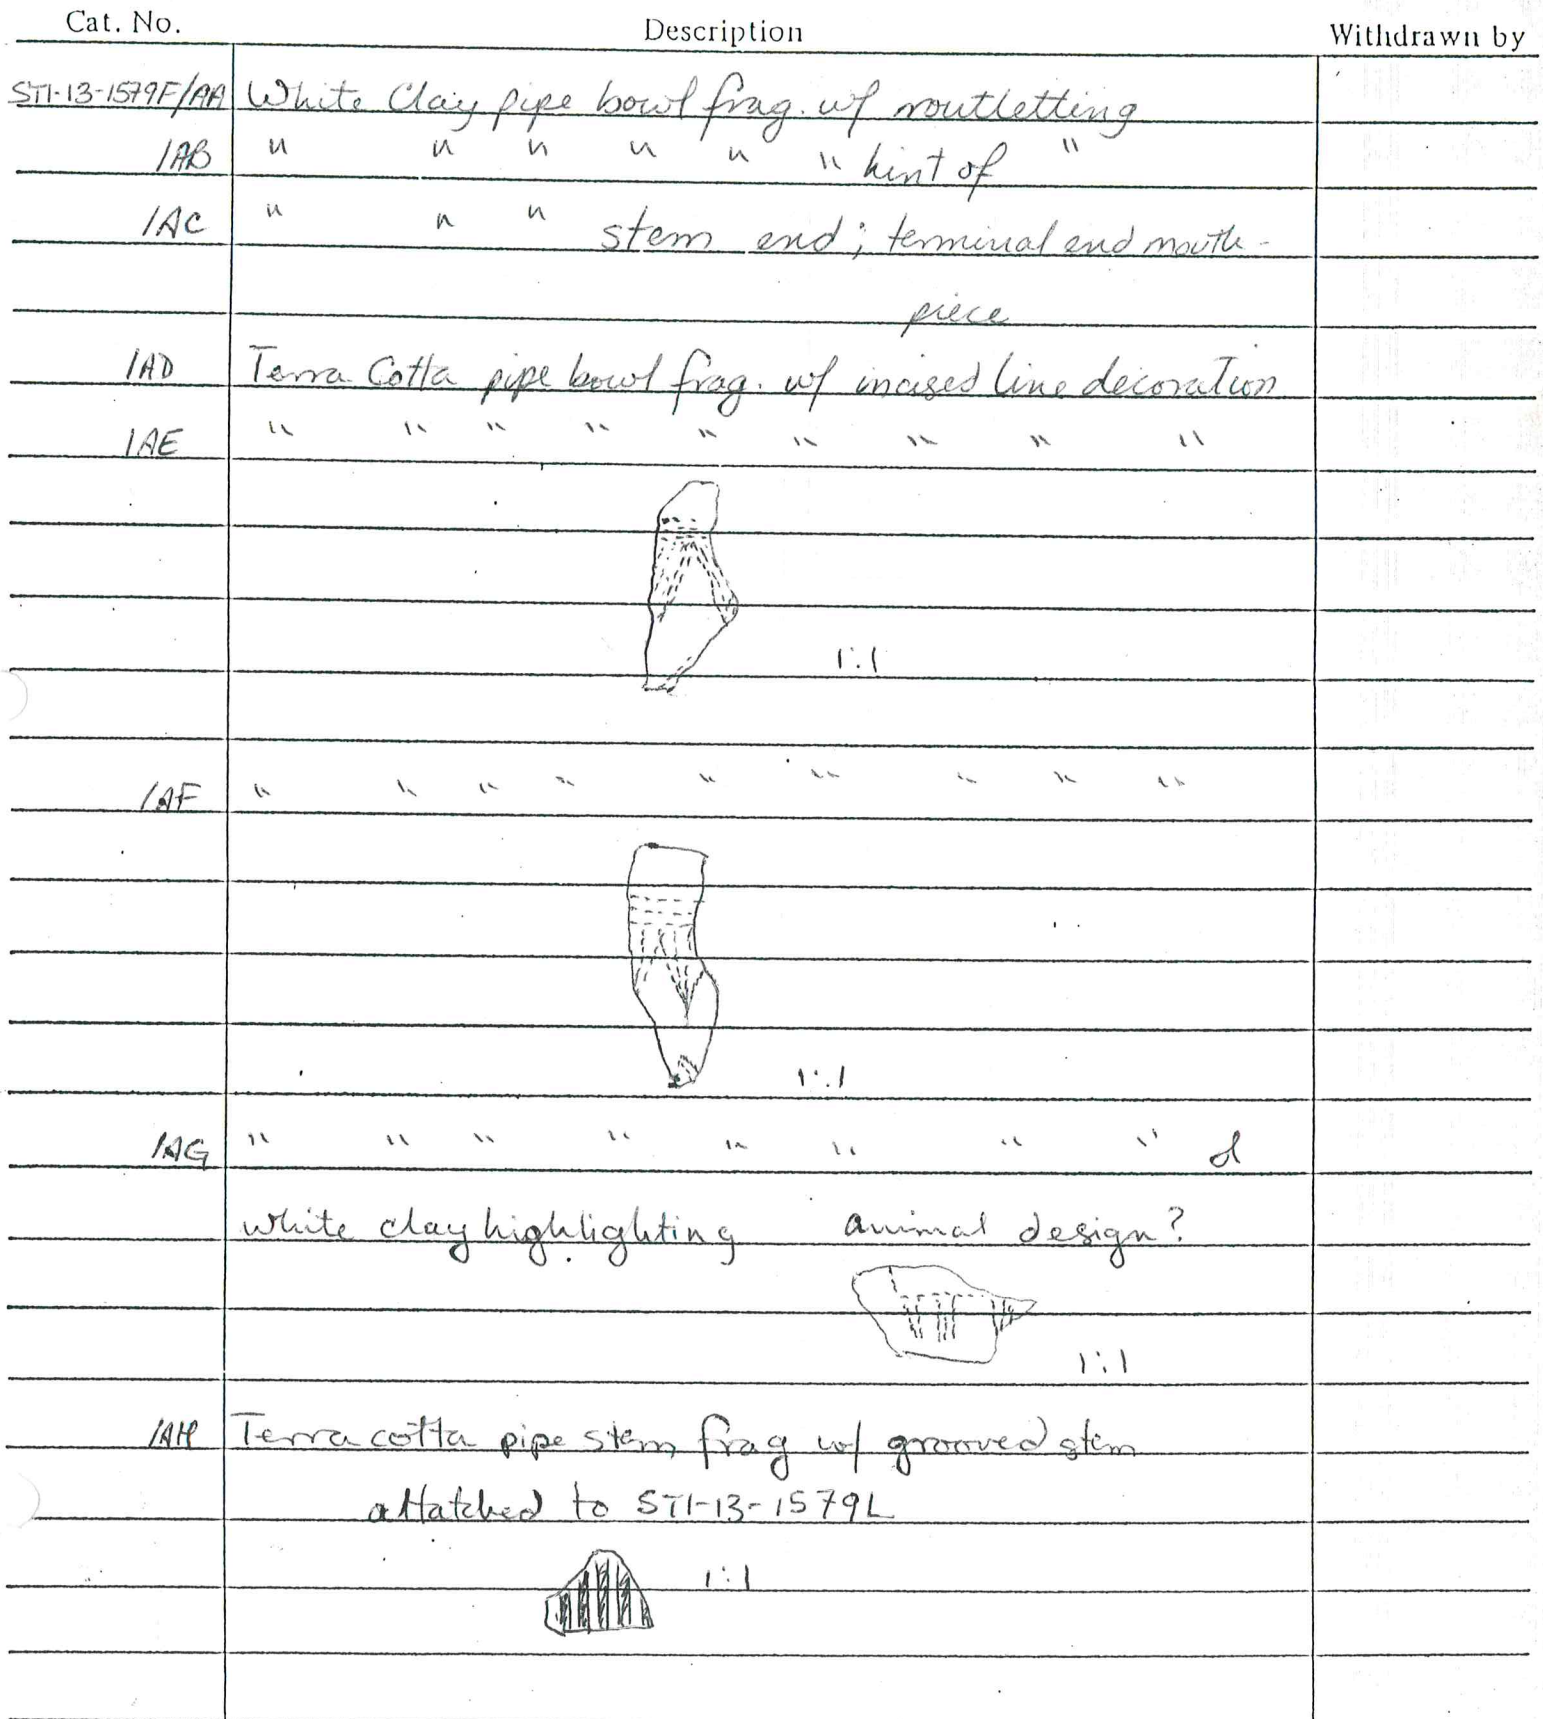 Cat. No. Description Withdrawn by
ST1-13-1579F/AA White Clay pipe bowl frag. w/ routletting
/AB " " " " " " hint of "
/AC " " " stem end; terminal end mouth-
piece
/AD Terra Cotta pipe bowl frag. w/ incised line decoration
/AE " " " " " " " " "
1:1
/AF " " " " " " " " "
1:1
/AG " " " " " " " " &
white clay highlighting animal design?
1:1
/AH Terra cotta pipe stem frag w/ grooved stem
attatched to ST1-13-1579L
1:1